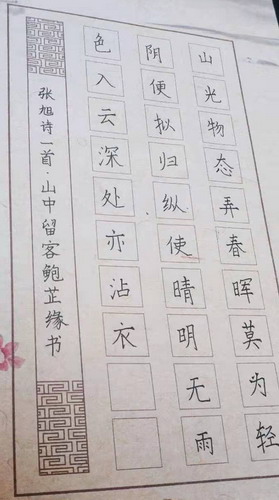 山光物态弄春晖莫为轻
阴便拟归纵使晴明无雨
色入云深处亦沾衣
张旭诗一首·山中留客鲍芷缘书